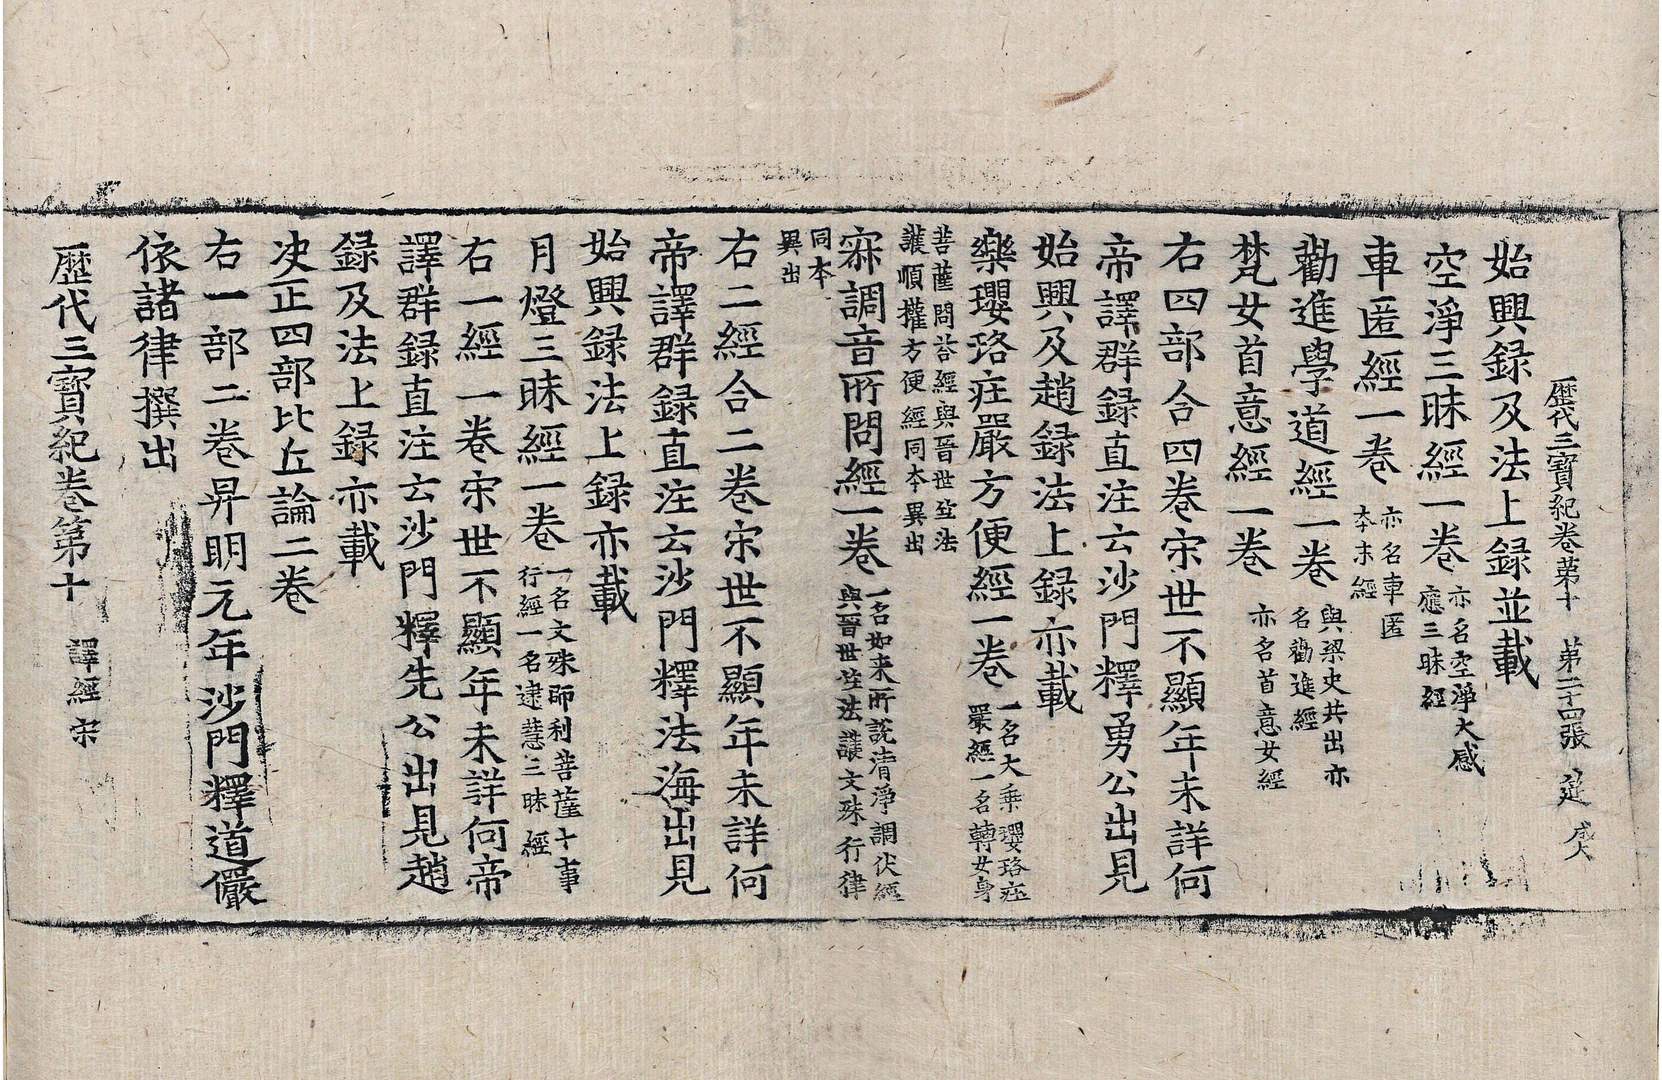 歷代三寶紀卷苐十 苐二十四張 㢟 感
始興録及法上録並載
空淨三昧經一卷 亦名空淨大感
應三昧經
車匿經一卷 亦名車匿
本末經
勸進學道經一卷 與梁史共出亦
名勸進經
梵女首意經一卷 亦名首意女經
右四部合四卷宋世不顯年未詳何
帝譯群録直注云沙門釋勇公出見
始興及趙録法上録亦載
樂瓔珞庄嚴方便經一卷 一名大乗瓔珞庄
嚴經一名轉女身
菩薩問荅經與晉世竺法
護順權方便經同本異出
寂調音所問經一卷 一名如来所說清淨調伏經
與晉世竺法護文殊行律
同本
異出
右二經合二卷宋世不顯年未詳何
帝譯群録直注云沙門釋法海出見
始興録法上録亦載
月燈三昧經一卷 一名文殊師利菩薩十事
行經一名逮慧三昧經
右一經一卷宋世不顯年未詳何帝
譯群録直注云沙門釋先公出見趙
録及法上録亦載
决正四部比丘論二卷
右一部二卷昇明元年沙門釋道儼
依諸律撰出
歷代三寶紀卷第十 譯經宋